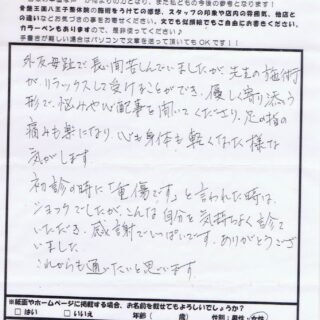 骨盤王国八王子整体院の施術をうけての感想、スタッフの対応や店内の雰囲気、他店と
の違いなどお気づきの事をお寄せください。文でも似顔絵でもご自由にお書きください。
カラーペンもありますので、是非使ってください♪
手書きが難しい場合はパソコンで文章を送って頂いてもOKです!!
外反母趾で長い間苦しんでいましたが、先生の施術
がリラックスして受けることができ、優しく寄り添う
形で、悩みや心配事を聞いてくださり、足の指の
痛みも楽になり、心も身体も軽くなった様な
気がします。
初診の時に「重傷です」と言われた時は、
ショックでしたが、こんな自分を気持ちよく診て
いただき、感謝でいっぱいです。ありがとうござ
いました。
これからも通いたいと思います。
※紙面やホームページに掲載する場合、お名前を載せてもよろしいでしょうか?
□はい □いいえ 年齢( 歳) 性別:男性・女性